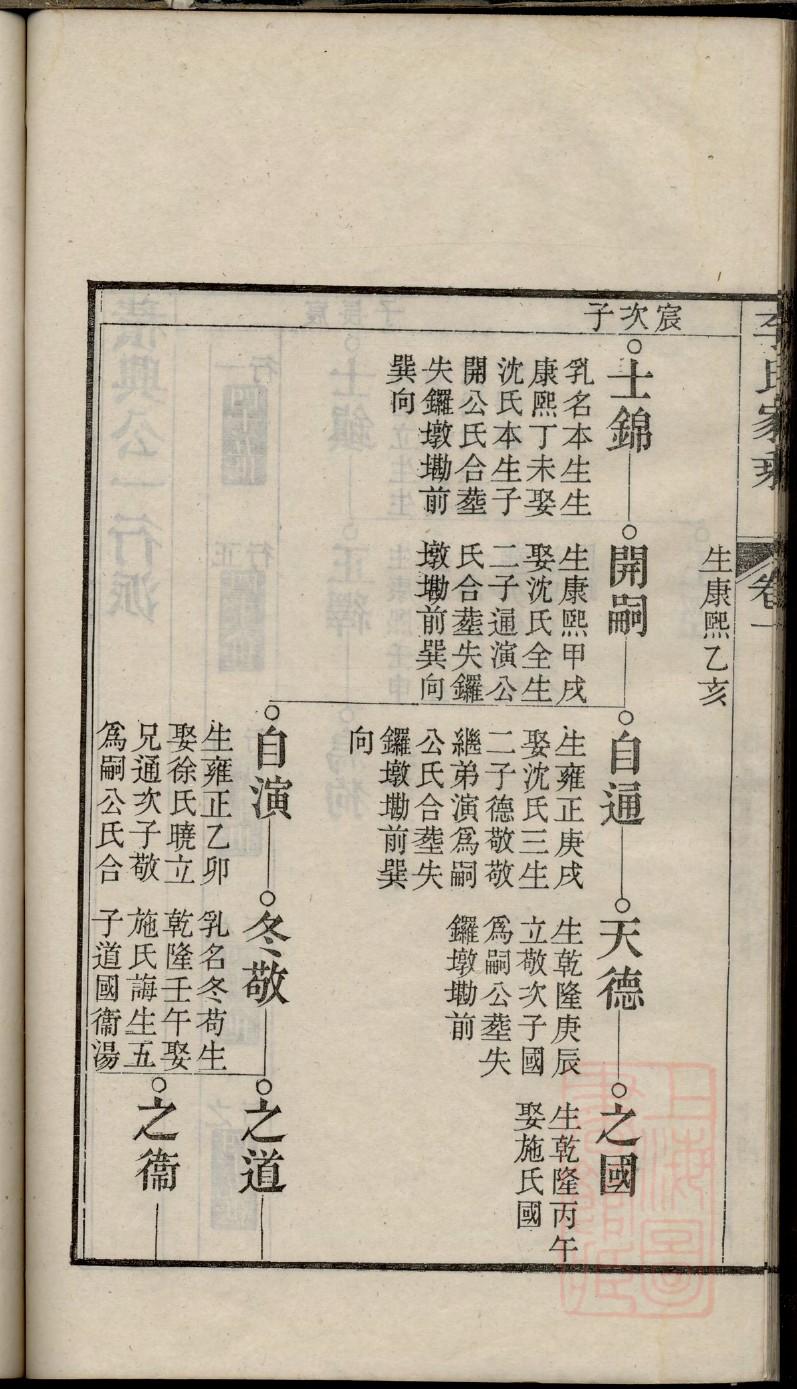 李氏家乘
卷一
生康熙乙亥
宸次子
士錦
乳名本生生
康熙丁未娶
沈氏本生子
開公氏合塟
失鑼墩墈前
巽向
開嗣
生康熙甲戌
娶沈氏全生
二子通演公
氏合塟失鑼
墩墈前巽向
自通
生雍正庚戌
娶沈氏三生
二子德敬敬
繼弟演爲嗣
公氏合塟失
鑼墩墈前巽
向
天德
生乾隆庚辰
立敬次子國
爲嗣公塟失
鑼墩墈前
之國
生乾隆丙午
娶施氏國
自演
生雍正乙卯
娶徐氏曉立
兄通次子敬
爲嗣公氏合
冬敬
乳名冬苟生
乾隆壬午娶
施氏誨生五
子道國衞湯
之道
之衞